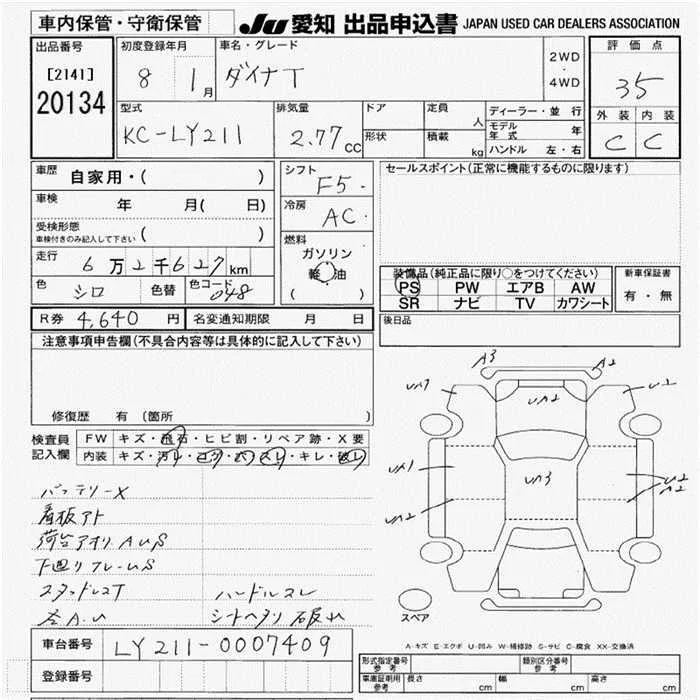 車内保管・守衛保管
JU 愛知 出品申込書 JAPAN USED CAR DEALERS ASSOCIATION
出品番号
[2141]
20134
初度登録年月
8 1月
車名・グレード
ダイナT
2WD
・
4WD
評価点
35
外装 内装
C C
型式
KC-LY211
排気量
2.77cc
ドア
定員
人
形状
積載
kg
ディーラー・並行
モデル年式 年
ハンドル 左・右
車歴
自家用・( )
車検
年 月( 日)
受検形態
車検付きのみ記入して下さい
( )
走行
6万2千627km
色
シロ
色替
色コード
048
シフト
F5
冷房
AC
燃料
ガソリン
軽油
( )
セールスポイント(正常に機能するものに限ります)
装備品(純正品に限り○をつけてください)
PS PW エアB AW
SR ナビ TV カワシート
新車保証書
有・無
R券 4,640円
名変通知期限 月 日
後日品
注意事項申告欄(不具合内容等は具体的に記入して下さい)
修復歴 有(箇所 )
検査員記入欄
FW キズ・飛石・ヒビ割・リペア跡・X要
内装 キズ・汚レ・コゲ・穴・スレ・キレ・破レ
バッテリーX
看板アト
荷台アオリAUS
下廻りフレームS
スタッドレスT
左A.U
ハンドルスレ
シートヘタリ 破れ
A3
A2
UA2
UA3
UA1
UA2
U2
A2
スペア
A-キズ E-エクボ U-凹み W-補修跡 S-サビ C-腐食 XX-交換済
車台番号
LY211-0007409
登録番号
形式指定番号
参考
類別区分番号
参考
車庫証明用
参考
長さ cm
幅 cm
高さ cm